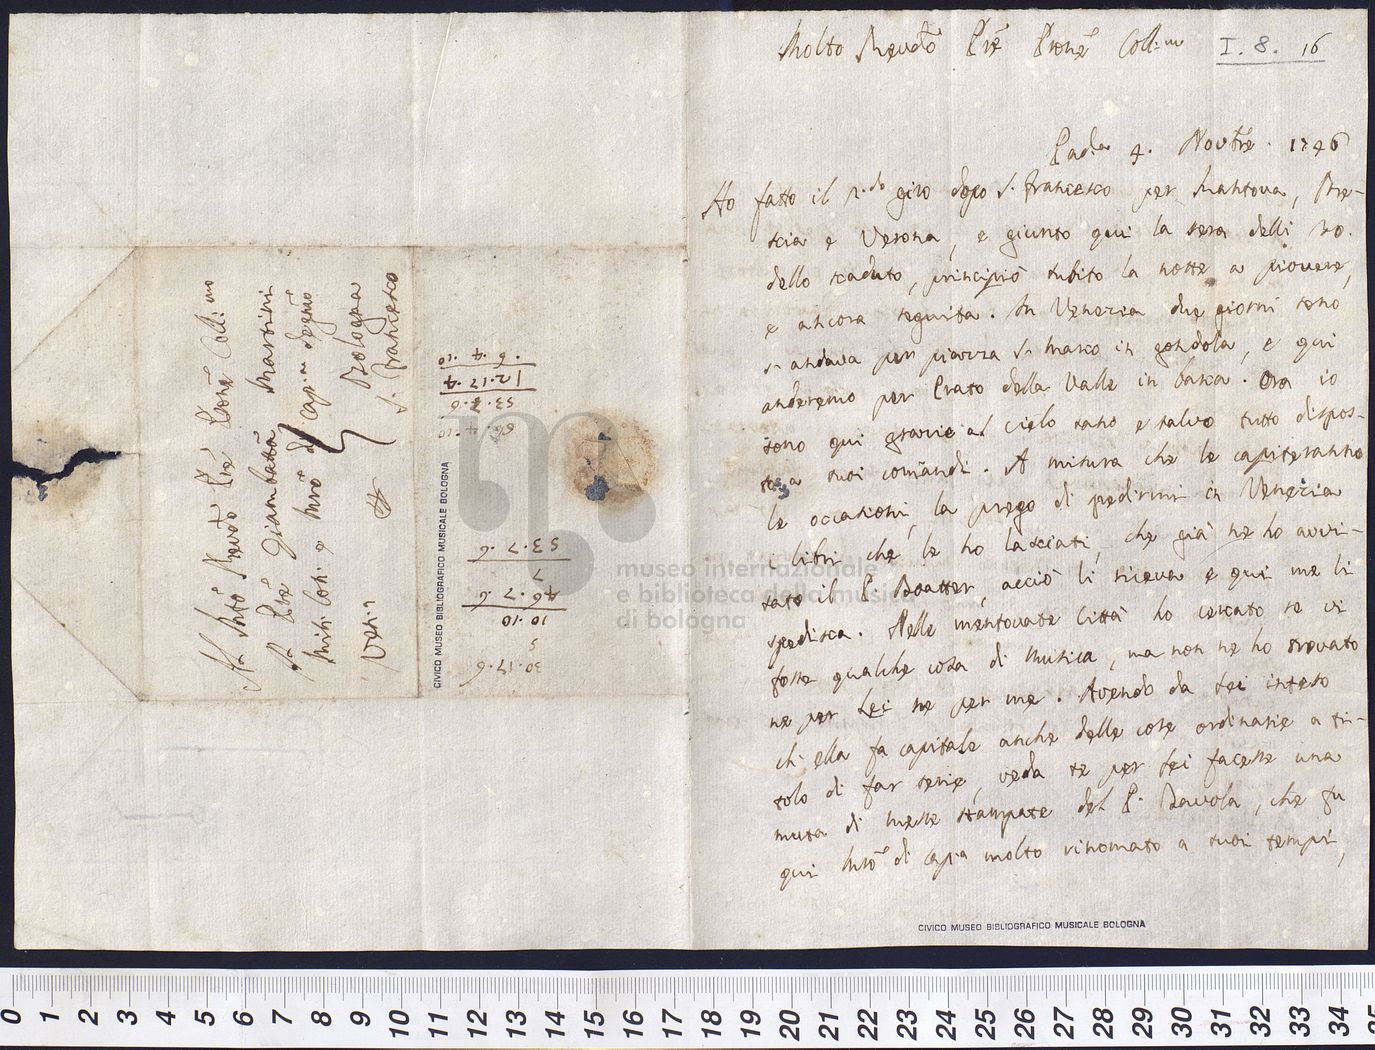 Molto Revdõ Prẽ Pronẽ Coll:mo
I. 8. 16
Pad.a 4. Novtr̃e. 1746
Ho fatto il 2.do giro dopo S. Francesco per Mantova, Bre-
scia e Verona, e giunto qui la sera delli 20.
dello scaduto, principiò subito la notte a piovere,
e ancora seguita. In Venezia due giorni sono
s'andava per piazza S. Marco in gondola, e qui
anderemo per Prato della Valle in barca. Ora io
sono qui grazie al cielo sano e salvo tutto dispos-
to a suoi comãndi. A misura che le capiteranno
le occasioni, la prego di spedirmi in Venezia
i libri che le ho lasciati, che già ne ho avvi-
sato il P. acciò li riceva e qui me li
spedisca. Nelle mentovate Città ho cercato se vi
fosse qualche cosa di Musica, ma non ne ho trovato
ne per Lei ne per me. Avendo da Lei inteso
ch'ella fa capitale anche delle cose ordinarie a ti-
tolo di far serie, veda se per Lei facesse una
muta di messe stampate del P., che fu
qui Mrõ di capa molto rinomato a suoi tempi,
CIVICO MUSEO BIBLIOGRAFICO MUSICALE BOLOGNA
Al Moltõ Revdõ Prẽ Pronẽ Coll:mo
Il Prẽ Giambattã Martini
Min: Con: e Mrõ di Cap:a degnõ
Bologna
S. Francesco
Ven:a
30.17.6
5
10.10
46.7.6
7
53.7.6
66.4.10
53.7.6
12.17.4
.6.4.10
CIVICO MUSEO BIBLIOGRAFICO MUSICALE BOLOGNA
museo internazionale
e biblioteca della musica
di bologna
0 1 2 3 4 5 6 7 8 9 10 11 12 13 14 15 16 17 18 19 20 21 22 23 24 25 26 27 28 29 30 31 32 33 34 35